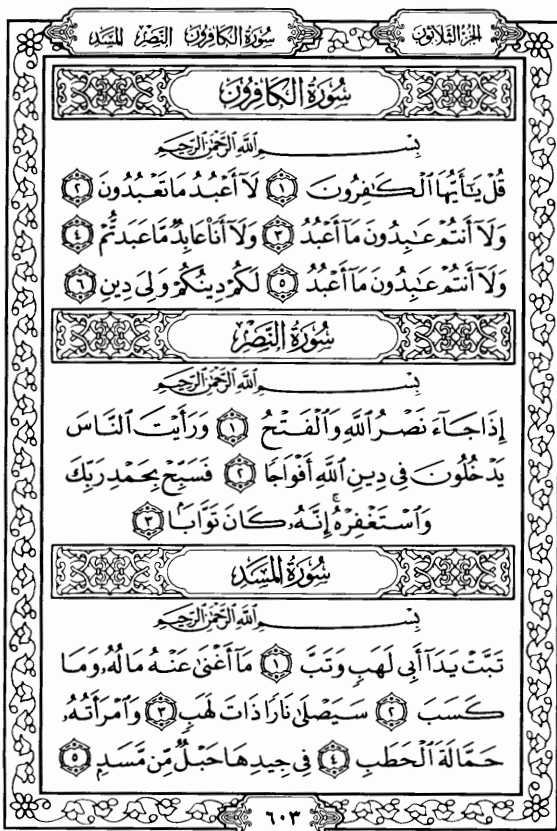 الجزء الثلاثون
سورة الكافرون النصر المسد
سُورَةُ الكَافِرُون
بِسْمِ اللَّهِ الرَّحْمَٰنِ الرَّحِيمِ
قُلْ يَٰٓأَيُّهَا ٱلْكَٰفِرُونَ ١ لَآ أَعْبُدُ مَا تَعْبُدُونَ ٢
وَلَآ أَنتُمْ عَٰبِدُونَ مَآ أَعْبُدُ ٣ وَلَآ أَنَا۠ عَابِدٌ مَّا عَبَدتُّمْ ٤
وَلَآ أَنتُمْ عَٰبِدُونَ مَآ أَعْبُدُ ٥ لَكُمْ دِينُكُمْ وَلِيَ دِينِ ٦
سُورَةُ النَّصْرِ
بِسْمِ اللَّهِ الرَّحْمَٰنِ الرَّحِيمِ
إِذَا جَآءَ نَصْرُ ٱللَّهِ وَٱلْفَتْحُ ١ وَرَأَيْتَ ٱلنَّاسَ
يَدْخُلُونَ فِي دِينِ ٱللَّهِ أَفْوَاجًا ٢ فَسَبِّحْ بِحَمْدِ رَبِّكَ
وَٱسْتَغْفِرْهُ ۚ إِنَّهُۥ كَانَ تَوَّابًۢا ٣
سُورَةُ المَسَد
بِسْمِ اللَّهِ الرَّحْمَٰنِ الرَّحِيمِ
تَبَّتْ يَدَآ أَبِي لَهَبٍ وَتَبَّ ١ مَآ أَغْنَىٰ عَنْهُ مَالُهُۥ وَمَا
كَسَبَ ٢ سَيَصْلَىٰ نَارًا ذَاتَ لَهَبٍ ٣ وَٱمْرَأَتُهُۥ
حَمَّالَةَ ٱلْحَطَبِ ٤ فِي جِيدِهَا حَبْلٌ مِّن مَّسَدٍۭ ٥
٦٠٣